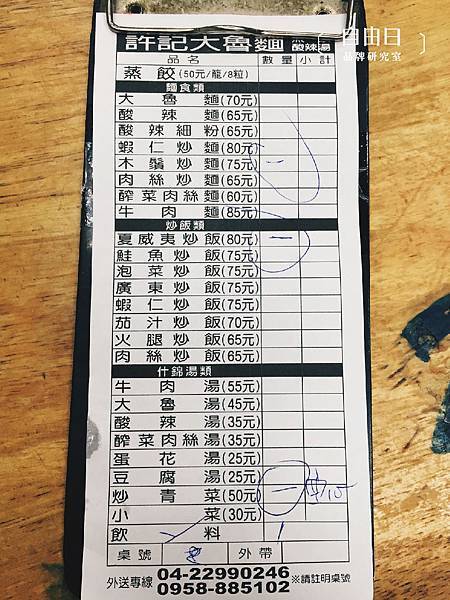 自由日
品牌研究室
許記大魯麵 蒸餃 酸辣湯
品名 數量 小計
蒸餃(50元/籠/8粒)
麵食類
大魯麵(70元)
酸辣麵(65元)
酸辣細粉(65元)
蝦仁炒麵(80元)
木鬚炒麵(75元) 一
肉絲炒麵(65元)
醡菜肉絲麵(60元)
牛肉麵(85元)
炒飯類
夏威夷炒飯(80元) 一
鮭魚炒飯(75元)
泡菜炒飯(75元)
廣東炒飯(75元)
蝦仁炒飯(75元)
茄汁炒飯(70元)
火腿炒飯(65元)
肉絲炒飯(65元)
什錦湯類
牛肉湯(55元)
大魯湯(45元)
酸辣湯(35元)
醡菜肉絲湯(35元)
蛋花湯(25元)
豆腐湯(25元)
炒青菜(50元) 一
小菜(30元)
飲料
桌號 8 外帶
外送專線 04-22990246 ※請註明桌號
0958-885102